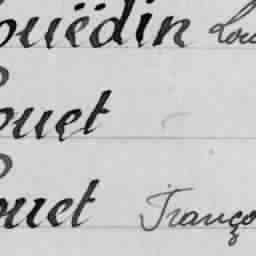 ouëdin Lou
ouet
ouet Franço